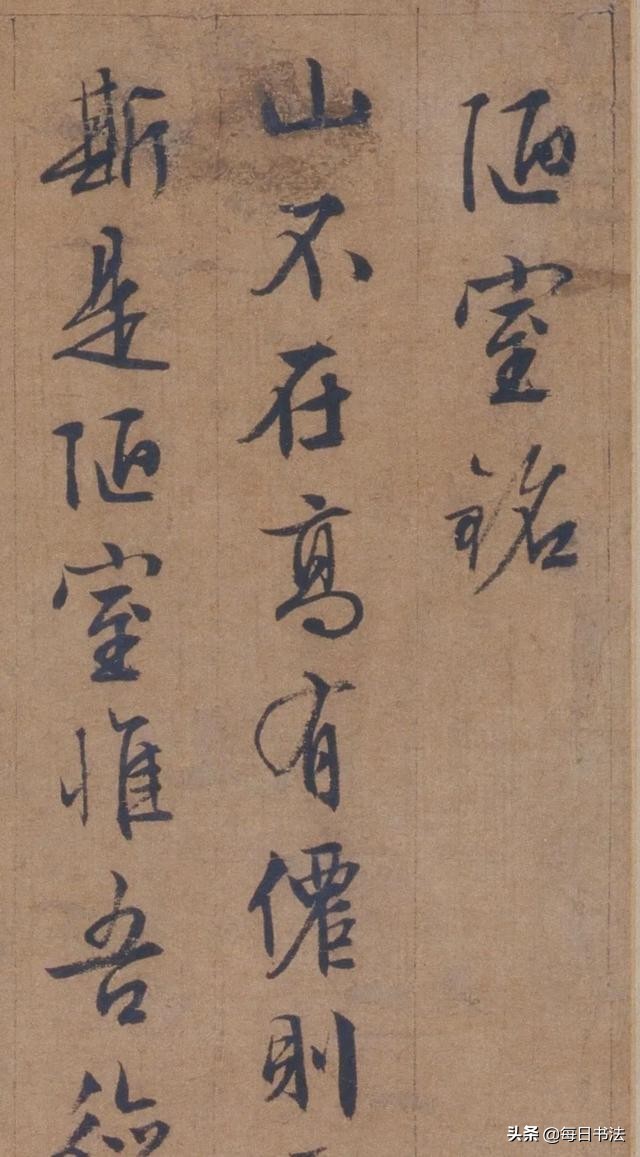 陋室銘
山不在高有僊則
斯是陋室惟吾德
头条 @每日书法